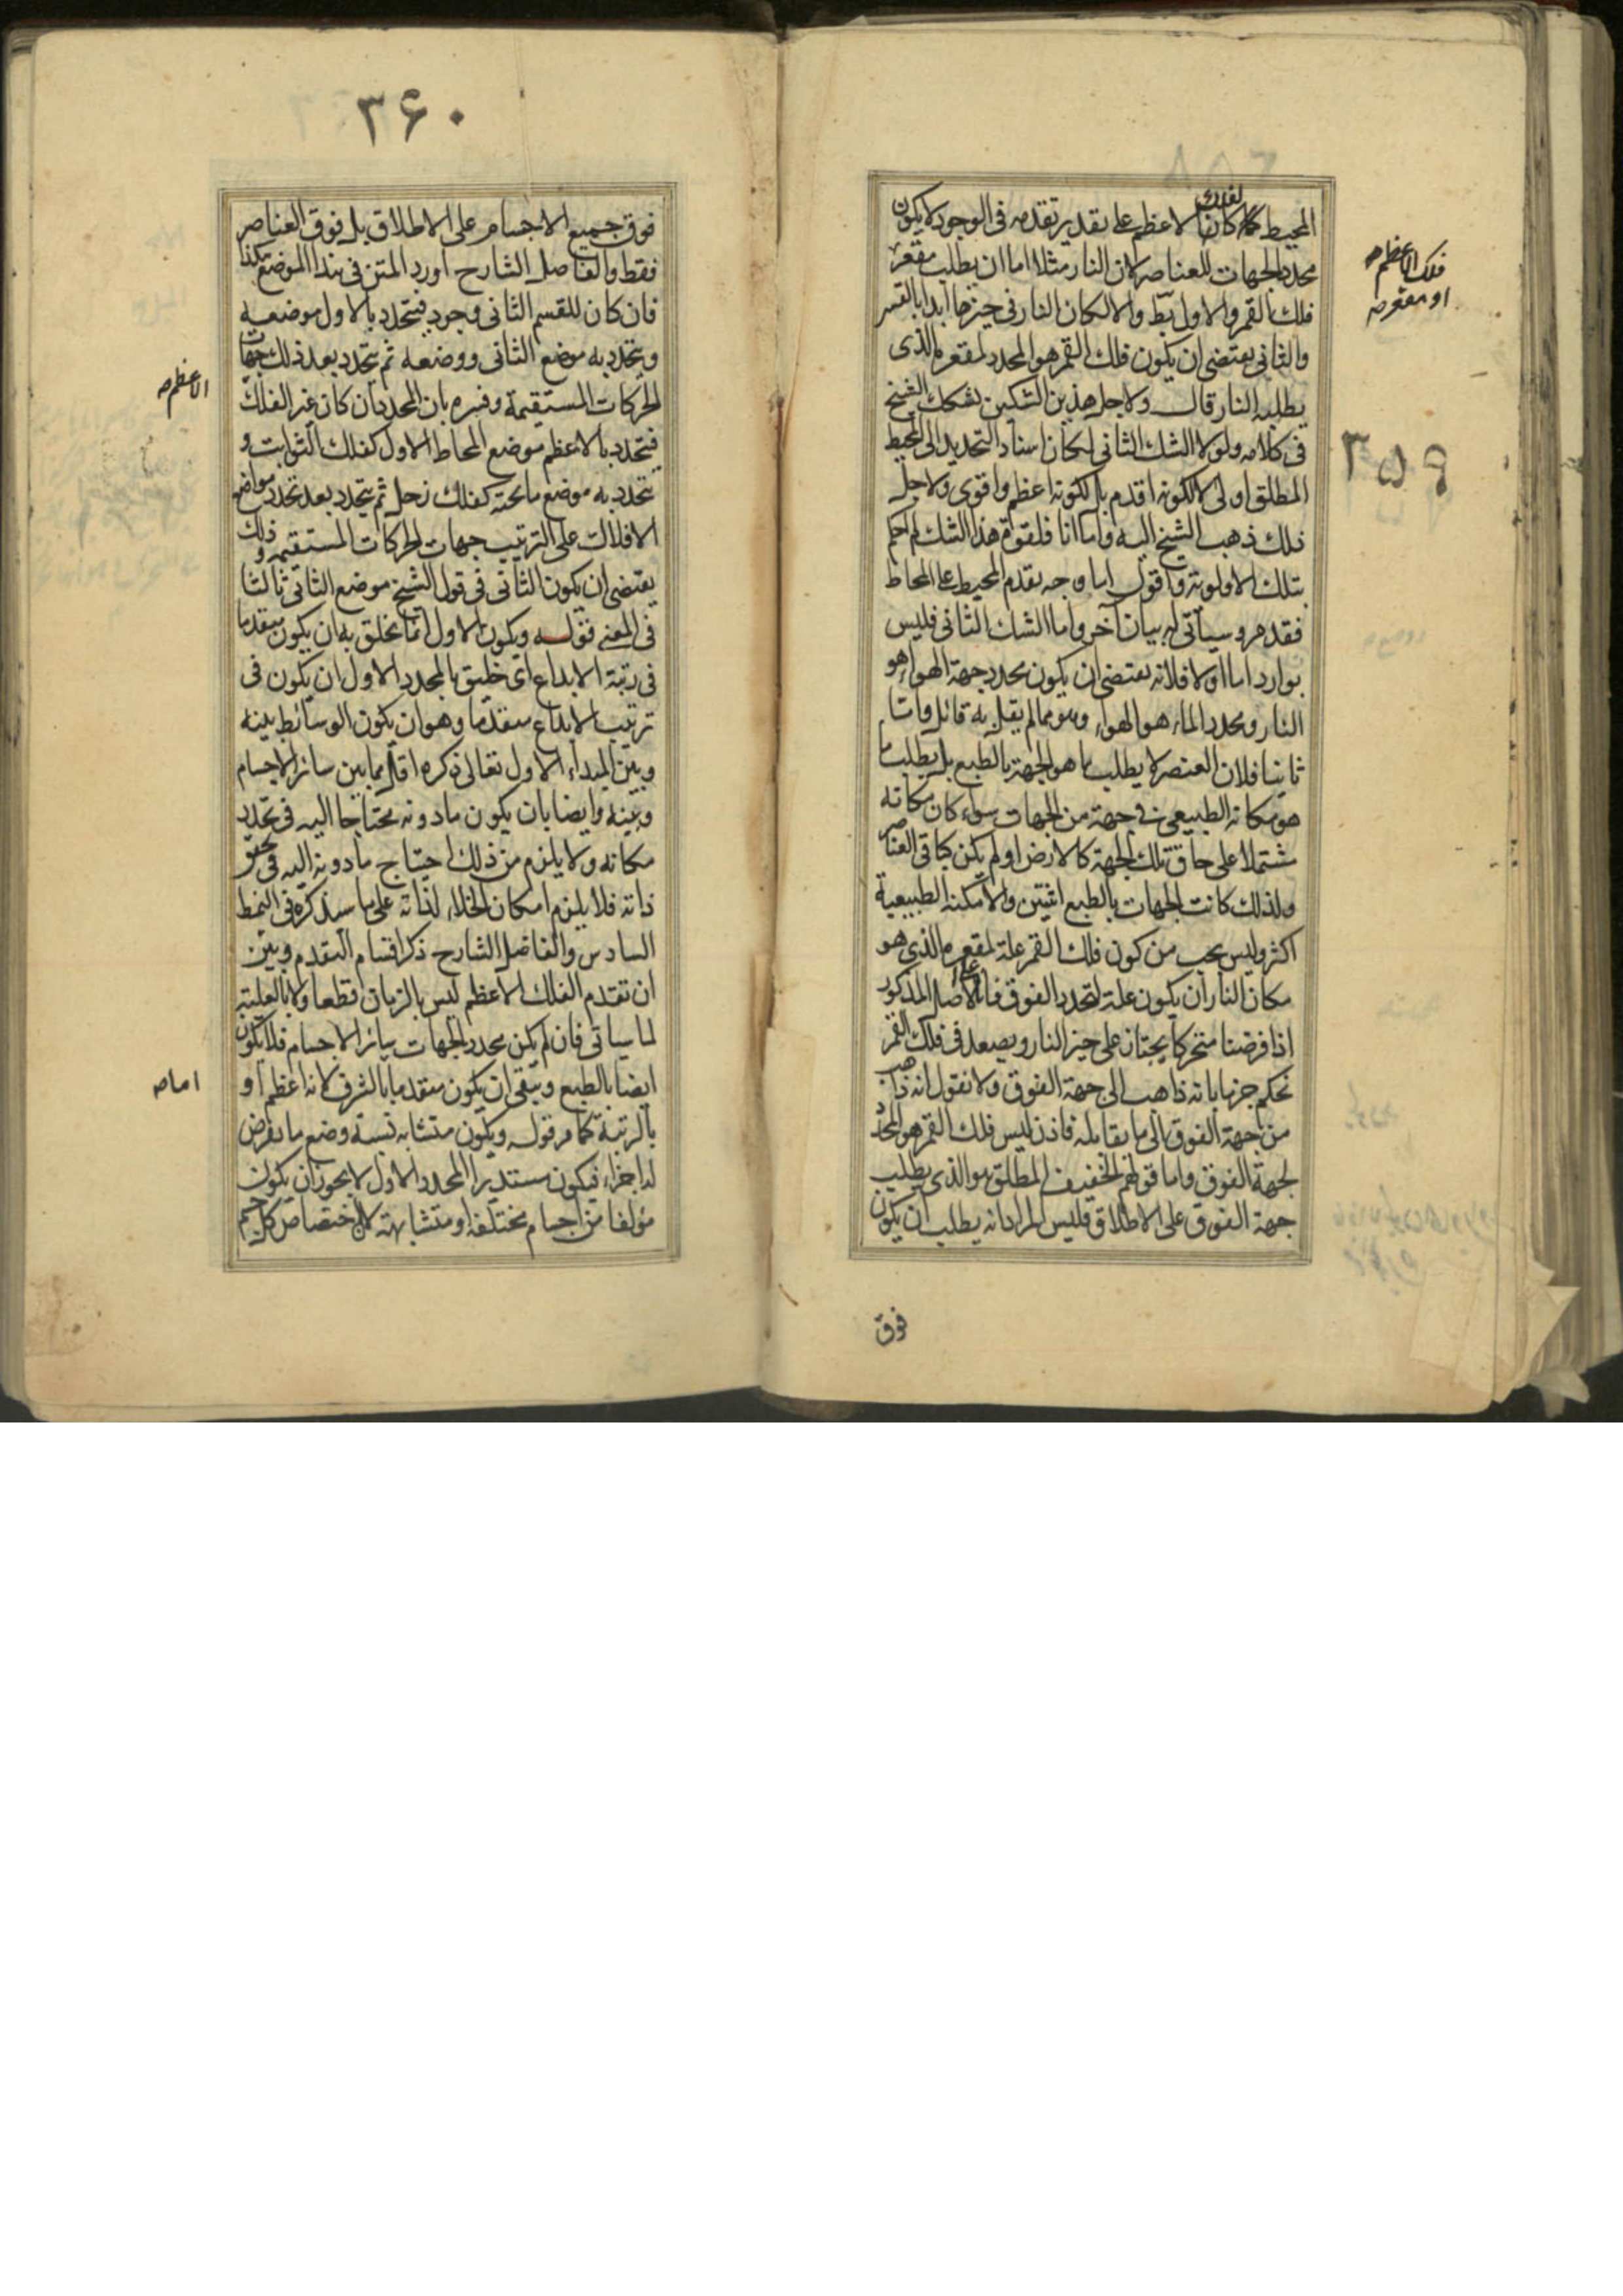 المحيط كما كان الفلك الاعظم على تقدير تقدمه فى الوجود لا يكون
محدد الجهات للعناصر لان النار مثلا اما ان يطلب مقعر
فلك القمر والاول بط والا لكان النار فى حيزها ابدا بالقسر
والثانى يقتضى ان يكون فلك القمر هو المحدد لمقعره الذى
يطلبه النار قال ولاجل هذين الشكين تشكك الشيخ
فى كلامه ولولا الشك الثانى لكان اسناد التحديد الى المحيط
المطلق اولى لا لكونه اقدم بل لكونه اعظم واقوى ولاجل
ذلك ذهب الشيخ اليه واما انا فلقوة هذا الشك لم احكم
بتلك الاولوية واقول اما وجه تقدم المحيط على المحاط
فقد مر وسيأتى له بيان آخر واما الشك الثانى فليس
بوارد اما اولا فلانه يقتضى ان يكون محدد جهة الهواء هو
النار ومحدد الماء هو الهواء وهو مما لم يقل به قائل واما
ثانيا فلان العنصر لا يطلب ما هو الجهة بالطبع بل يطلب ما
هو مكانه الطبيعى فى جهة من الجهات سواء كان مكانه
مشتملا على حاق تلك الجهة كالارض او لم يكن كباقى العناصر
ولذلك كانت الجهات بالطبع اثنتين والامكنة الطبيعية
اكثر وليس يجب من كون فلك القمر علة لمقعره الذى هو
مكان النار ان يكون علة لتحدد الفوق فانا على الاصل المذكور
اذا فرضنا متحركا يجتاز على حيز النار ويصعد فى فلك القمر
نحكم جزما بانه ذاهب الى جهة الفوق ولا نقول انه ذاهب
من جهة الفوق الى ما يقابله فاذن ليس فلك القمر هو المحدد
لجهة الفوق واما قولهم الخفيف المطلق هو الذى يطلب
جهة الفوق على الاطلاق فليس المراد انه يطلب ان يكون
فوق
فلك الاعظم صح
او مقعر صح
٣٥٩
٣۶٠
فوق جميع الاجسام على الاطلاق بل فوق العناصر
فقط والفاضل الشارح اورد المتن فى هذا الموضع هكذا
فان كان للقسم الثانى وجود فيتحدد بالاول موضعه
ويتحدد به موضع الثانى ووضعه ثم يتحدد بعد ذلك جهات
الحركات المستقيمة وفسره بان المحدد ان كان غير الفلك
فيتحدد بالاعظم موضع المحاط الاول كفلك الثوابت و
يتحدد به موضع ما تحته كفلك زحل ثم يتحدد بعد تحدد مواضع
الافلاك على الترتيب جهات الحركات المستقيمه وذلك
يقتضى ان يكون الثانى فى قول الشيخ موضع الثانى ثالثا
فى المعنى قوله ويكون الاول انما يخلق به ان يكون متقدما
فى رتبة الابداع اى خليق بالمحدد الاول ان يكون فى
ترتيب الابداع متقدما وهو ان يكون الوسائط بينه
وبين المبداء الاول تعالى ذكره اقل مما بين سائر الاجسام
وبينه وايضا بان يكون ما دونه محتاجا اليه فى تحدد
مكانه ولا يلزم من ذلك احتياج ما دونه اليه فى تحقق
ذاته فلا يلزم امكان الخلاء لذاته على ما سنذكره فى النمط
السادس والفاضل الشارح ذكر اقسام التقدم وبين
ان تقدم الفلك الاعظم ليس بالزمان قطعا ولا بالعلية
لما سيأتى فان لم يكن محدد الجهات سائر الاجسام فلا يكون
ايضا بالطبع وبقى ان يكون متقدما بالشرف لانه اعظم او
بالرتبة كما مر قوله ويكون متشابه نسبة وضع ما يفرض
له اجزاء فيكون مستديرا المحدد الاول لا يجوز ان يكون
مؤلفا من اجسام مختلفة او متشابهة لان اختصاص كل جسم
الاعظم صح
اما صح